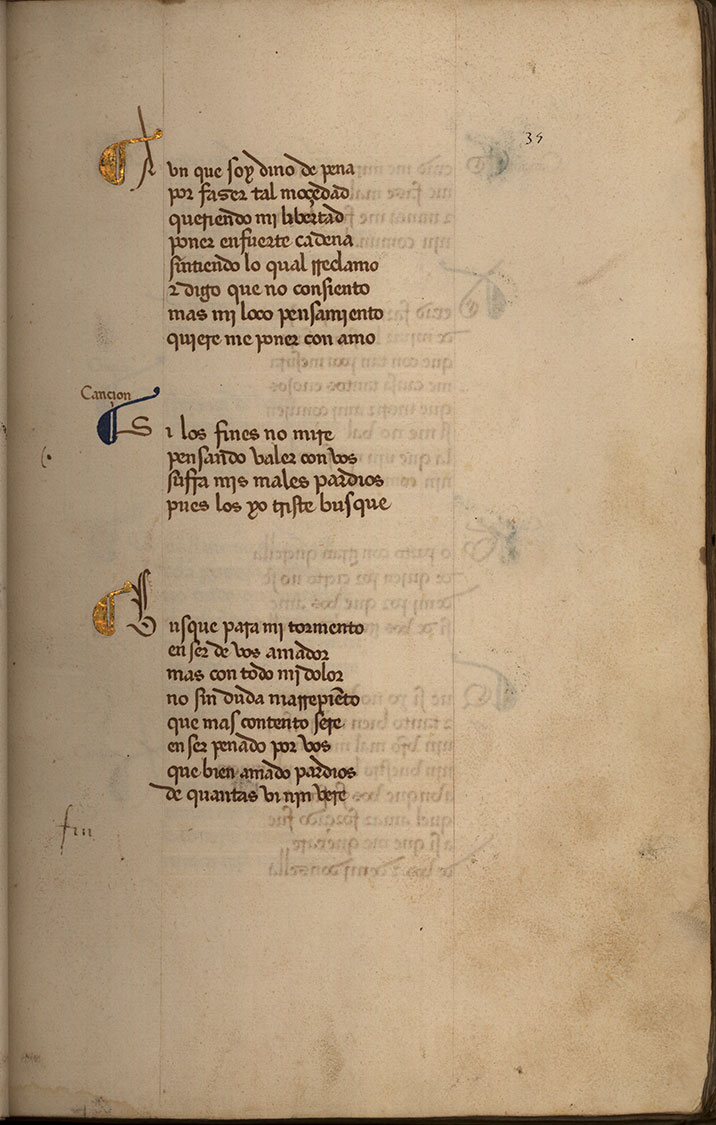 35
Aun que soy dino de pena
por faser tal moçedad
queriendo mi libertad
poner enfuerte cadena
sintiendo lo qual rreclamo
z digo que no consiento
mas mi loco pensamiento
quiere me poner con amo
Cançion
Si los fines no mire
pensando valer con vos
suffra mis males pardios
pues los yo triste busque
Busque para mi tormento
en ser de vos amador
mas con todo mj dolor
no sin duda marrepiẽto
que mas contento sere
en ser penado por vos
que bien amado pardios
de quantas vi njn vere
fin